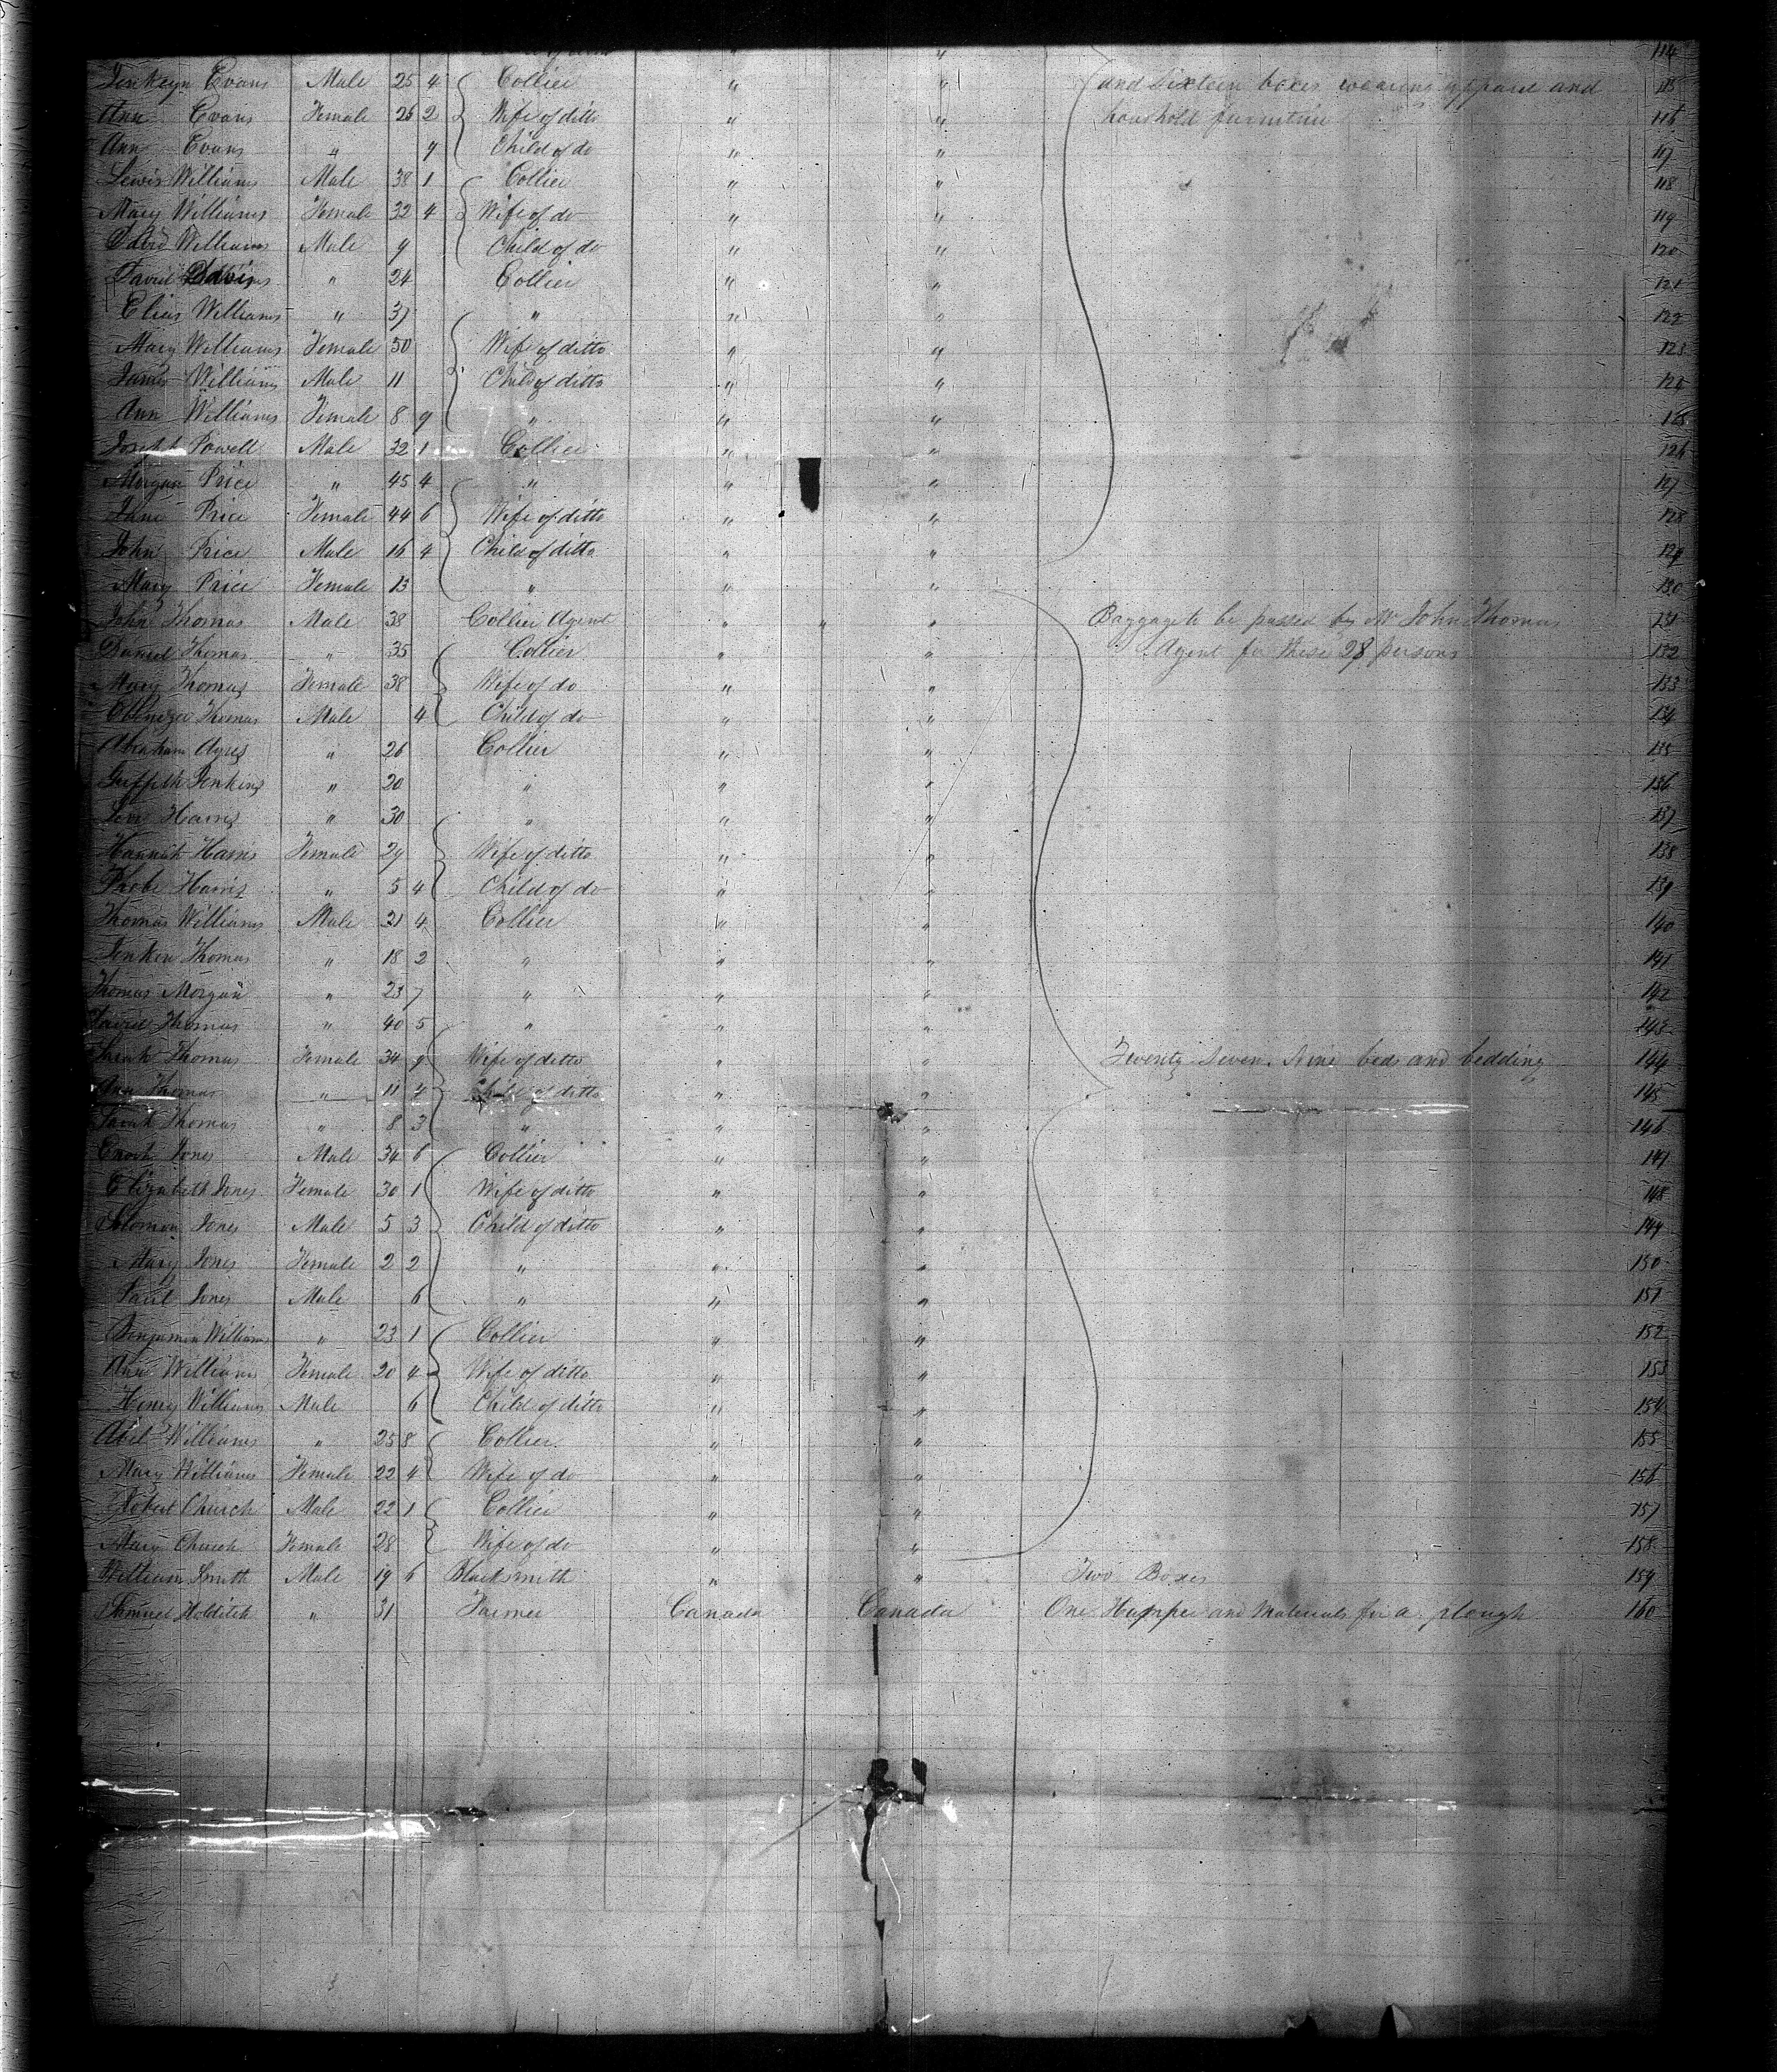 " " 114
Jenkeyn Evans Male 25 4 Collier " " (and Sixteen boxes wearing apparel and 115
Ann Evans Female 26 2 Wife of ditto " " household furniture 116
Ann Evans " 9 Child of do " " 117
Lewis Williams Male 38 1 Collier " " 118
Mary Williams Female 32 4 Wife of do " " 119
David Williams Male 9 Child of do " " 120
David " 24 Collier " " 121
Elias Williams " 37 " " " 122
Mary Williams Female 50 Wife of ditto " " 123
James Williams Male 11 Child of ditto " " 124
Ann Williams Female 8 9 " " " 125
Joseph Powell Male 32 1 Collier " " 126
Morgan Price " 45 4 " " " 127
Jane Price Female 44 6 Wife of ditto " " 128
John Price Male 16 4 Child of ditto " " 129
Mary Price Female 13 " " " 130
John Thomas Male 38 Collier Agent " " " Baggage to be passed by Mr John Thomas 131
Daniel Thomas " 35 Collier " " Agent for these 28 persons 132
Mary Thomas Female 38 Wife of do " " 133
Ebenezer Thomas Male 4 Child of do " " 134
Abraham Ayres " 26 Collier " " 135
Griffith Jenkins " 20 " " " 136
Levi Harris " 30 " " " 137
Hannah Harris Female 29 Wife of ditto " " 138
Phobe Harris " 5 4 Child of do " " 139
Thomas Williams Male 21 4 Collier " " 140
Jenkin Thomas " 18 2 " " " 141
Thomas Morgan " 23 7 " " " 142
David Thomas " 40 5 " " " 143
Sarah Thomas Female 34 9 Wife of ditto " " Twenty Seven. Nine beds and bedding 144
Ann Thomas " 11 4 Child of ditto " " 145
Sarah Thomas " 8 3 " " " 146
Enoch Jones Male 34 6 Collier " " 147
Elizabeth Jones Female 30 1 Wife of ditto " " 148
Solomon Jones Male 5 3 Child of ditto " " 149
Mary Jones Female 2 2 " " " 150
Paul Jones Male 6 " " " 151
Benjamin Williams " 23 1 Collier " " 152
Ann Williams Female 20 4 Wife of ditto " " 153
Henry Williams Male 6 Child of ditto " " 154
Abel Williams " 25 8 Collier " " 155
Mary Williams Female 22 4 Wife of do " " 156
Robert Church Male 22 1 Collier " " 157
Mary Church Female 28 Wife of do " " 158
William Smith Male 19 6 Blacksmith " " Two Boxes 159
Samuel Holditch " 31 Farmer Canada Canada One and Materials for a plough 160